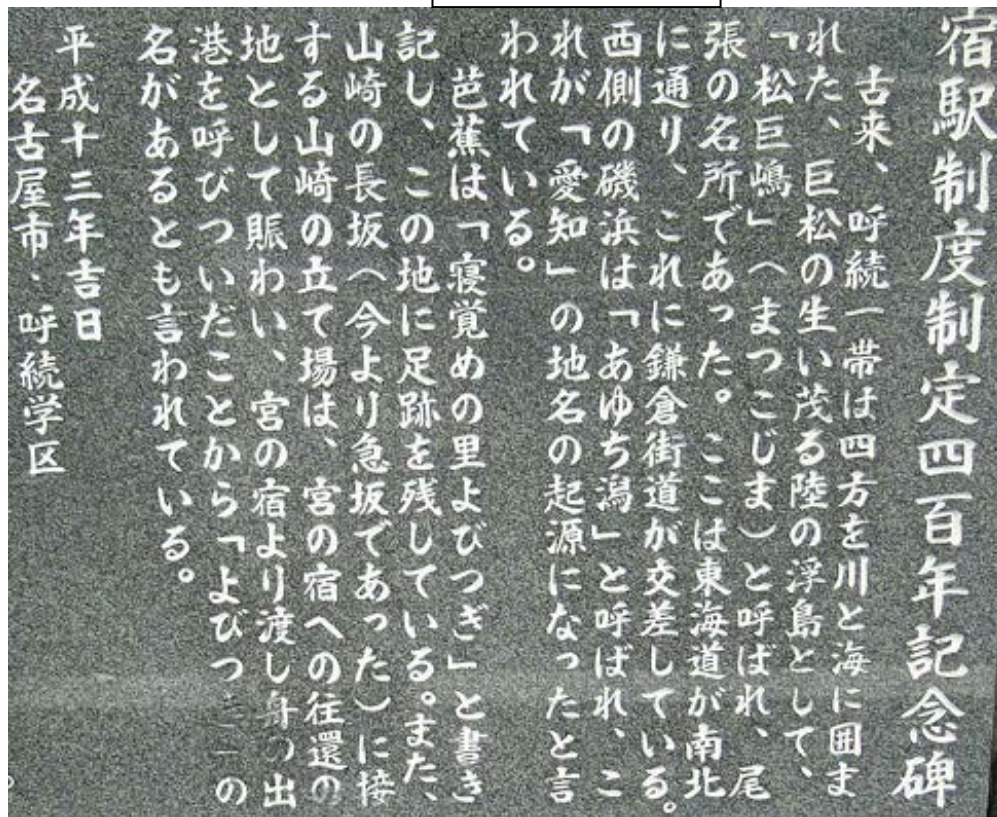 宿駅制度制定四百年記念碑
古来、呼続一帯は四方を川と海に囲ま
れた、巨松の生い茂る陸の浮島として、
「松巨嶋」(まつこじま)と呼ばれ、尾
張の名所であった。ここは東海道が南北
に通り、これに鎌倉街道が交差している。
西側の磯浜は「あゆち潟」と呼ばれ、こ
れが「愛知」の地名の起源になったと言
われている。
芭蕉は「寝覚めの里よびつぎ」と書き
記し、この地に足跡を残している。また、
山崎の長坂(今より急坂であった)に接
する山崎の立て場は、宮の宿への往還の
地として賑わい、宮の宿より渡し舟の出
港を呼びついだことから「よびつぎ」の
名があるとも言われている。
平成十三年吉日
名古屋市・呼続学区